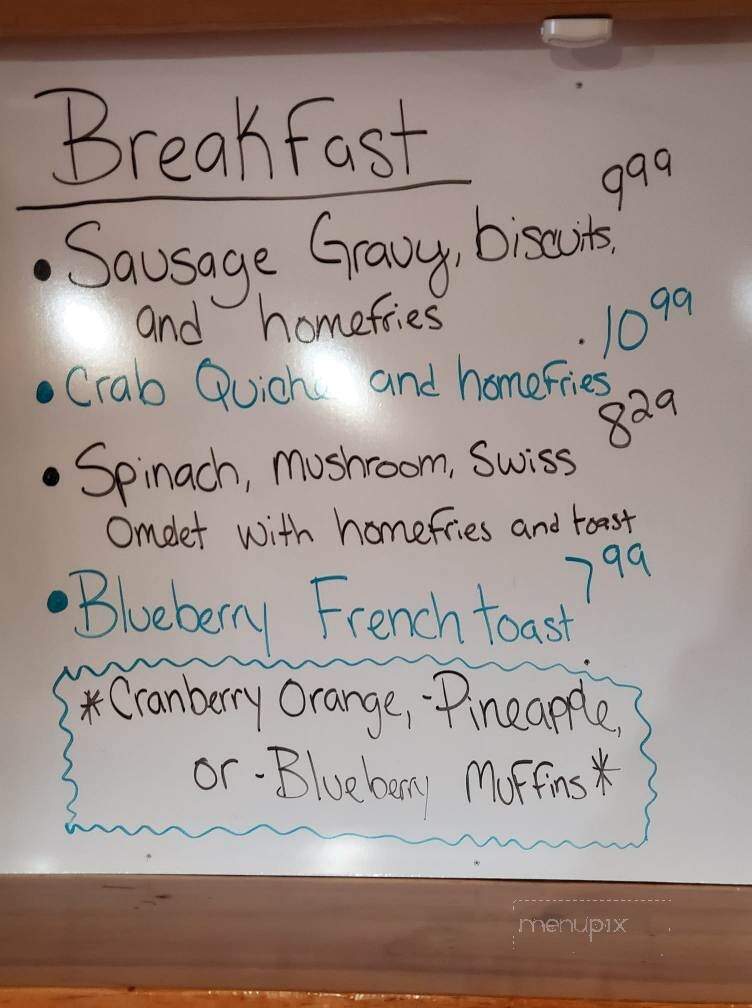 Breakfast
999
• Sausage Gravy, biscuits,
and homefries
.1099
• Crab Quiche and homefries
829
• Spinach, mushroom, Swiss
Omelet with homefries and toast
799
• Blueberry French toast
*Cranberry Orange, -Pineapple,
or -Blueberry Muffins*
menupix